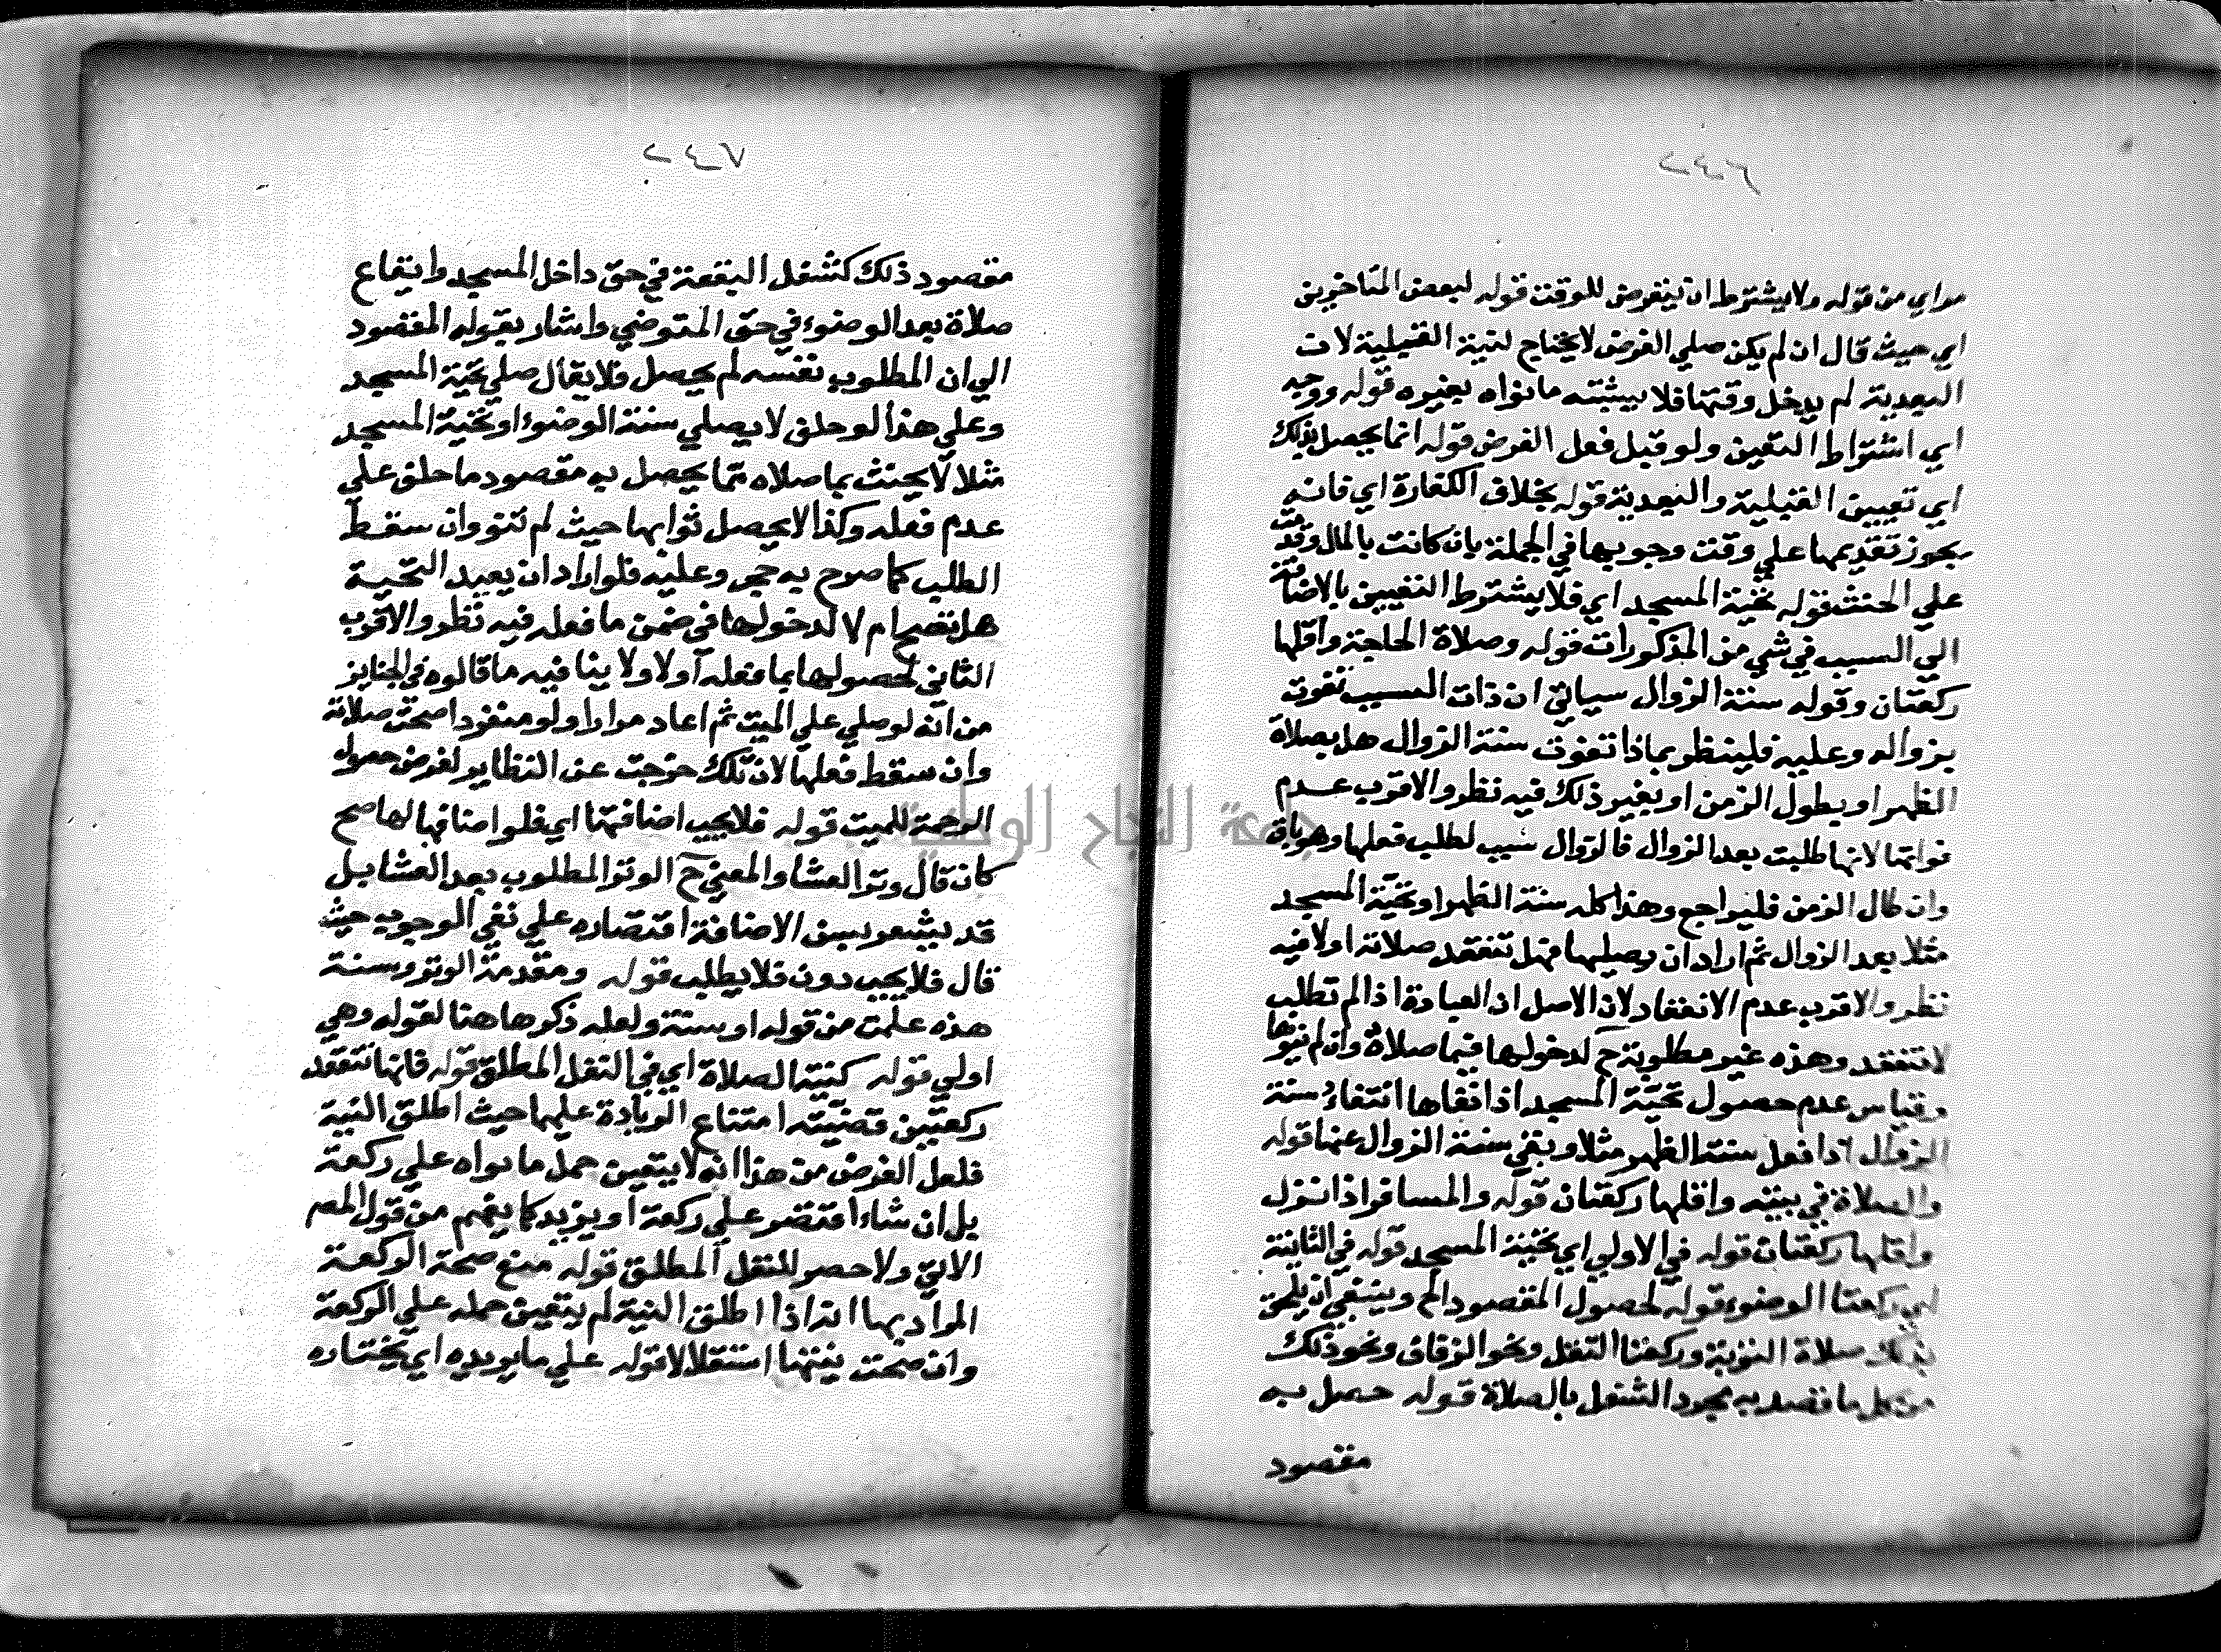 ٢٤٦
مراي من قوله ولا يشترط ان ينفرض للوقت قوله لبعض المتاخرين
اي حيث قال ان لم يكن صلي الفرض لا يحتاج لنية القبلية لات
البعدية لم يدخل وقتها فلا يشتبه ما نواه بغيره قوله ووجه
اي اشتراط التعيين ولو قبل فعل الفرض قوله انما يحصل بذلك
اي تعيين القبلية والبعدية قوله بخلاف الكفارة اي فانه
يجوز تقديمها علي وقت وجوبها في الجملة بان كانت بالمال وقدمت
علي الحنث قوله تحية المسجد اي فلا يشترط التعيين بالاضافة
الي السبب في شي من المذكورات قوله وصلاة الحاجة واقلها
ركعتان وقوله سنة الزوال سياتي ان ذات السبب تفوت
بزواله وعليه فلينظر بماذا تفوت سنة الزوال هل بصلاة
الظهر او بطول الزمن او بغير ذلك فيه نظر والاقرب عدم
فواتها لانها طلبت بعد الزوال فالزوال سبب لطلب فعلها وهو باق
وان طال الزمن فليراجع وهذا كله سنة الظهر او تحية المسجد
مثلا بعد الزوال ثم اراد ان يصليها فهل تنعقد صلاته اولا فيه
نظر والاقرب عدم الانعقاد لان الاصل ان العبادة اذا لم تطلب
لا تنعقد وهذه غير مطلوبة ح لدخولها فيما صلاه وان لم ينوها
وقياس عدم حصول تحية المسجد اذا نفاها انتفاء سنة
الزوال اذا فعل سنة الظهر مثلا ونفي سنة الزوال عنها قوله
والصلاة في بيته واقلها ركعتان قوله والمسافر اذا نزل
واقلها ركعتان قوله في الاولي اي تحية المسجد قوله في الثانية
اي ركعتا الوضوء قوله لحصول المقصود الخ وينبغي ان يلحق
بذلك صلاة التوبة وركعتا القتل ونحو الزفاف ونحو ذلك
من كل ما قصد به مجرد الشغل بالصلاة قوله حصل به
مقصود
٢٤٧
مقصود ذلك كشغل البقعة في حق داخل المسجد وايقاع
صلاة بعد الوضوء في حق المتوضي واشار بقوله المقصود
الي ان المطلوب نفسه لم يحصل فلا يقال صلي تحية المسجد
وعلي هذا لو حلف لا يصلي سنة الوضوء او تحية المسجد
مثلا لا يحنث بما صلاه مما يحصل به مقصود ما حلف علي
عدم فعله وكذا لا يحصل ثوابها حيث لم تنو وان سقط
الطلب كما صرح به حجر وعليه فلو اراد ان يعيد التحية
هل تصح ام لا لدخولها في ضمن ما فعله فيه نظر والاقرب
الثاني لحصولها بما فعله اولا ولا ينافيه ما قالوه في الجنايز
من انه لو صلي علي الميت ثم اعاد مرارا ولو منفردا صحت صلاته
وان سقط فعلها لان تلك خرجت عن النظاير لغرض حصول
الرحمة للميت قوله فلا يجب اضافتها اي فلو اضافها لها صح
كان قال وتر العشا والمعني ح الوتر المطلوب بعد العشا بل
قد يشعر بسن الاضافة اقتصاره علي نفي الوجوب حيث
قال فلا يجب دون فلا يطلب قوله ومقدمة الوتر وسنة
هذه علمت من قوله او سنته ولعله ذكرها هنا لقوله وهي
اولي قوله كنية الصلاة اي في النفل المطلق قوله فانها تنعقد
ركعتين قضيته امتناع الزيادة عليها حيث اطلق النية
فلعل الغرض من هذا انه لا يتعين حمل ما نواه علي ركعة
بل ان شاء اقتصر علي ركعة او يزيد كما يفهم من قول المص
الاتي ولا حصر للنفل المطلق قوله منع صحة الركعة
المراد بها انه اذا اطلق النية لم يتعين حمله علي الركعة
وان صحت نيتها استقلالا قوله علي ما يريده اي يختاره
جامعة النجاح الوطنية